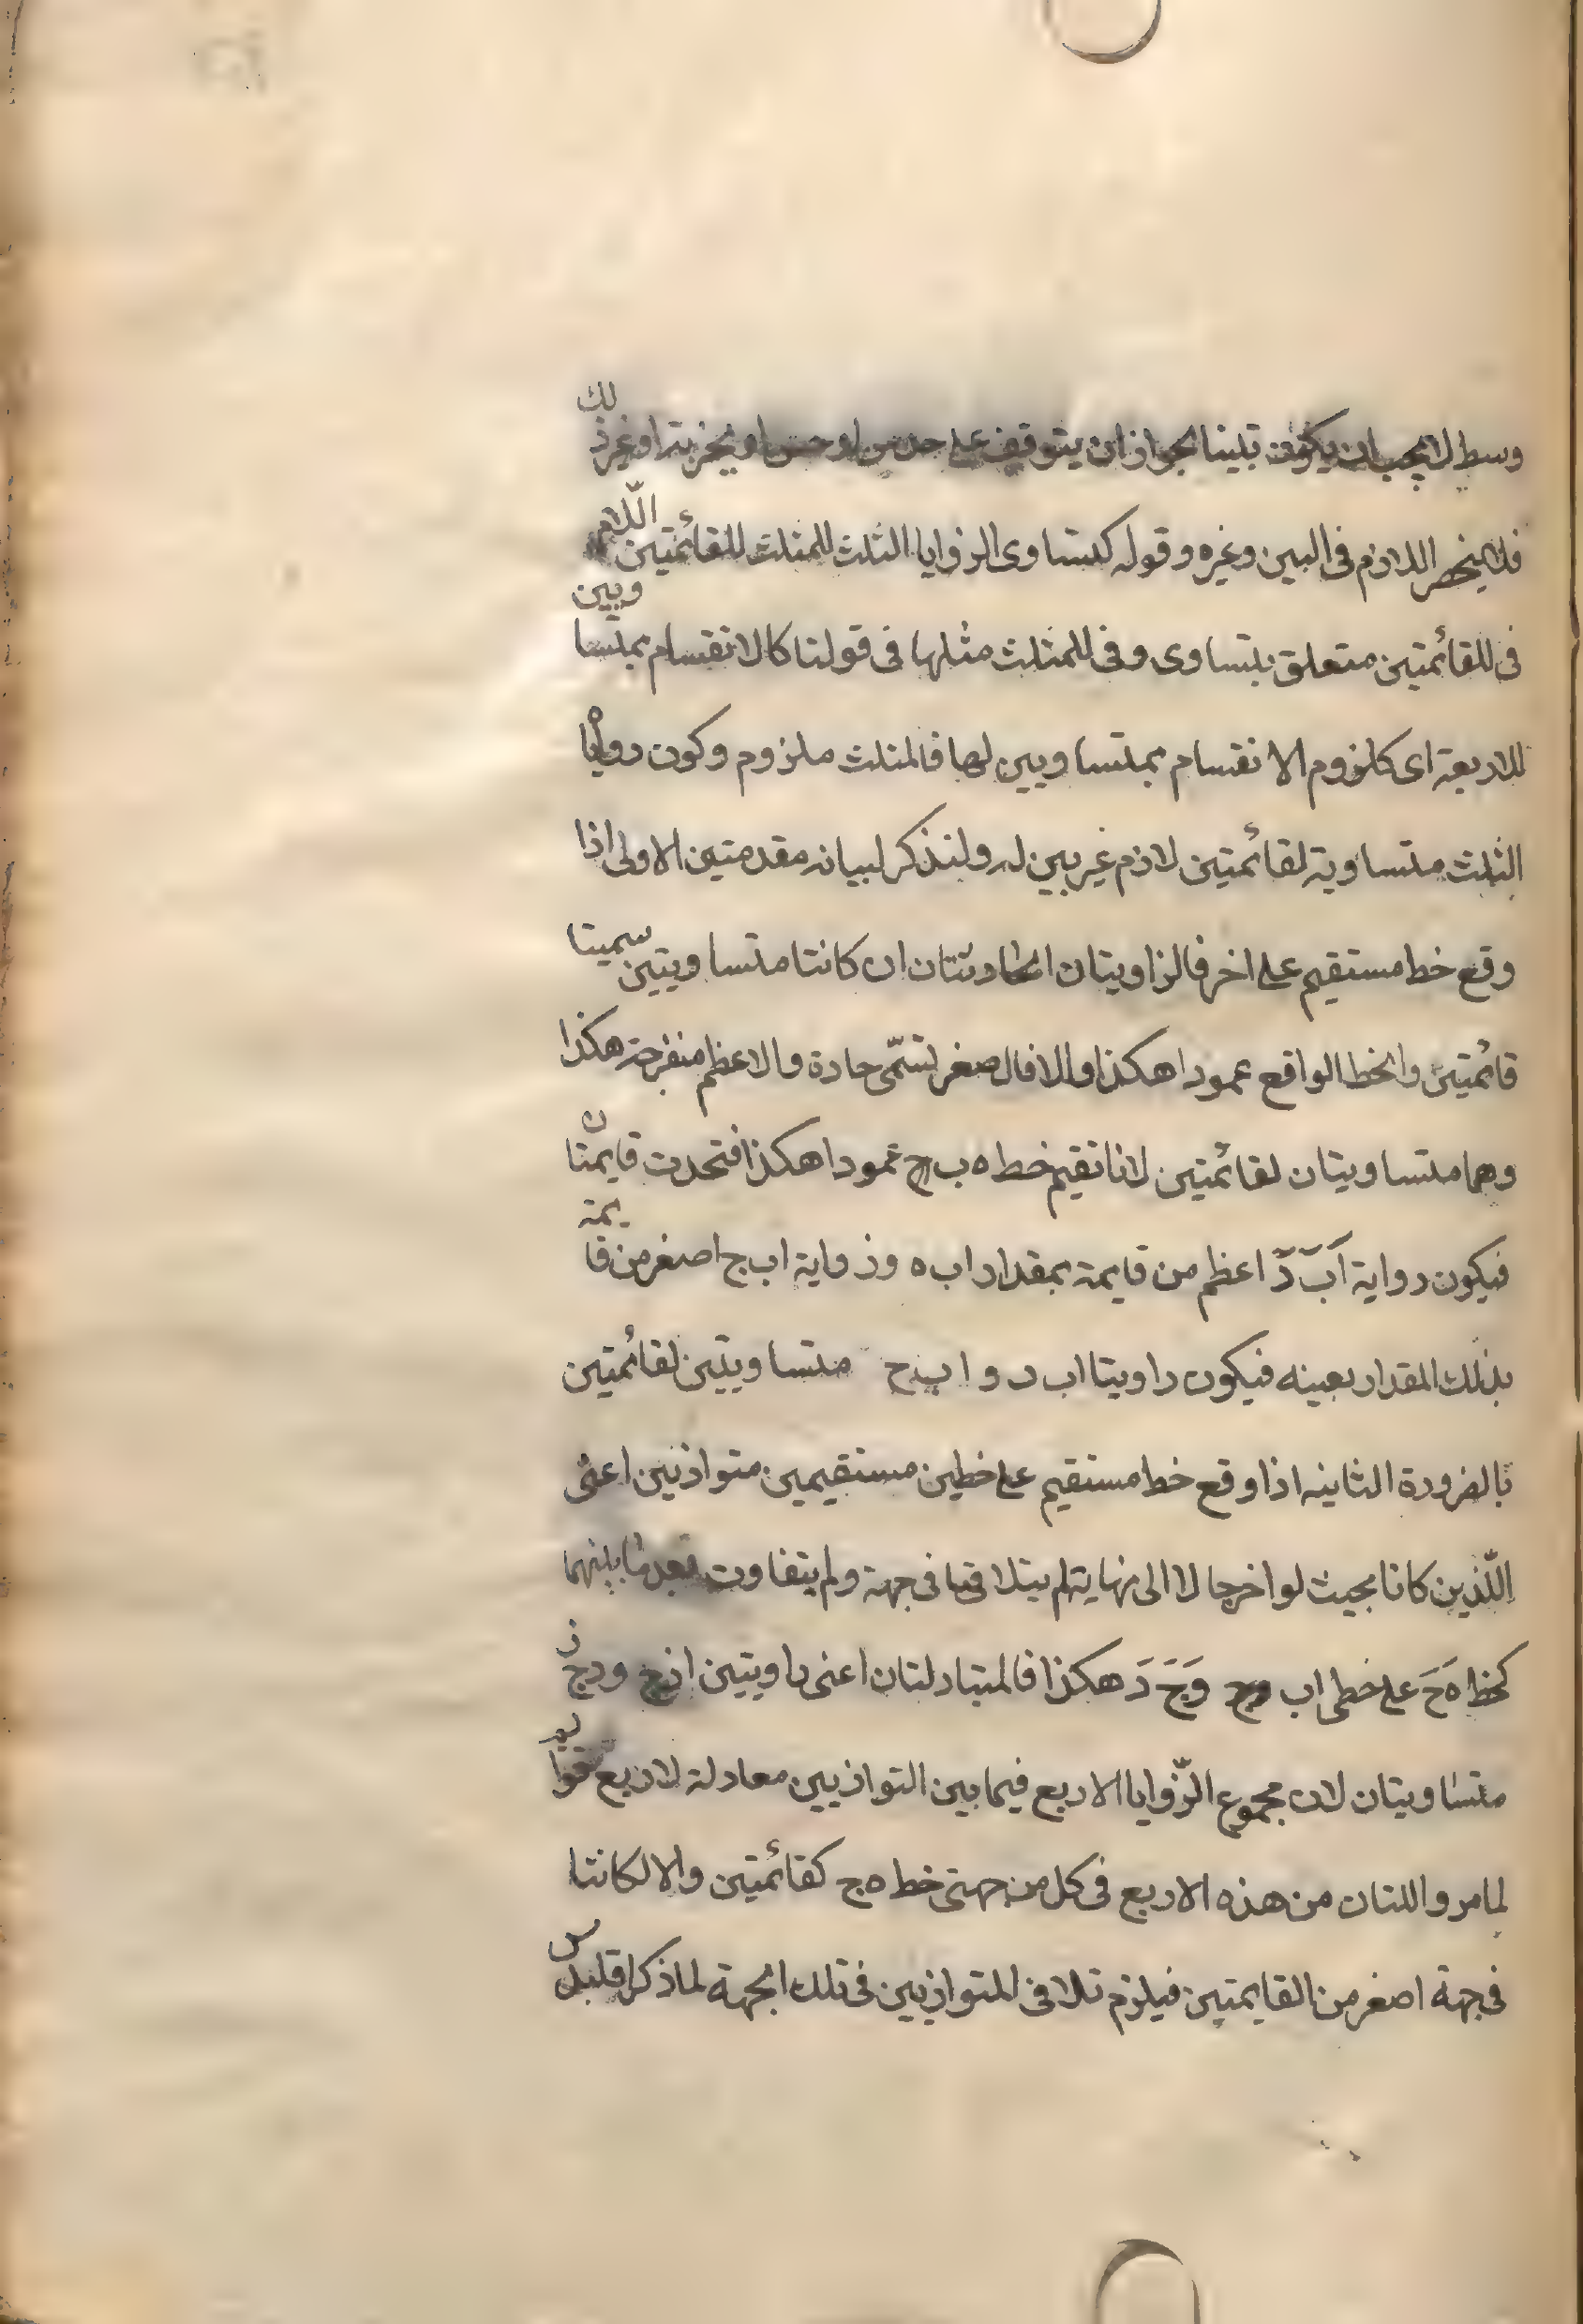 وسط لا يجب ان يكون بينا لجواز ان يتوقف على حدس او حس او تجربة او غير ذلك
فلا ينحصر اللازم فى البين وغيره وقوله كتساوى الزوايا الثلث للمثلث للقائمتين اللام
فى للقائمتين متعلق بتساوى وفى للمثلث مثلها فى قولنا كالانقسام بمتساويين
للاربعة اى كلزوم الانقسام بمتساويين لها فالمثلث ملزوم وكون زواياه
الثلث متساوية لقائمتين لازم غير بين له ولنذكر لبيانه مقدمتين الاولى اذا
وقع خط مستقيم على اخر فالزاويتان الحادثتان ان كانتا متساويتين سميتا
قائمتين والخط الواقع عمودا هكذا والا فالاصغر تسمّى حادة والاعظم منفرجة هكذا
وهما متساويتان لقائمتين لانا نقيم خط ه ب ج عمودا هكذا فتحدث قايمتان
فيكون رواية اَ بَ دَ اعظم من قايمة بمقدار اب ه وزواية اب ج اصغر من قايمة
بذلك المقدار بعينه فيكون زاويتا اب د و ا ب ح متساويتين لقائمتين
بالضرورة الثانيه اذا وقع خط مستقيم على خطين مستقيمين متوازيين اعنى
اللّذين كانا بحيث لو اخرجا لا الى نهاية لم يتلاقيا فى جهة ولم يتفاوت بعد ما بينهما
كخط ه ح على خطى اب وَ جَ دَ هكذا فالمتبادلتان اعنى زاويتين ا ز ح و د ج ز
متساويتان لان مجموع الزّوايا الاربع فيما بين التوازيين معادلة لاربع قوايم
لما مر واللتان من هذه الاربع فى كل من جهتى خط ه ج كقائمتين والا لكانتا
فى جهة اصغر من القايمتين فيلزم تلاقى المتوازيين فى تلك الجهة لما ذكر اقليدس